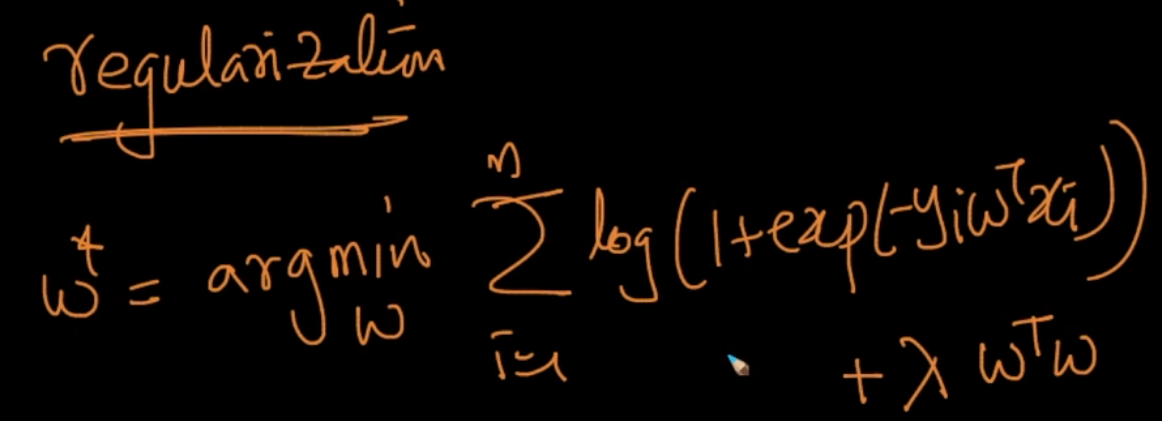 regularization
w* = argmin_w Σ_{i=1}^{n} log(1+exp(-y_i w^T x_i))
+ λ w^T w